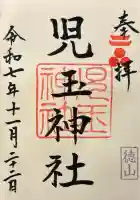 奉拝
児玉神社
令和七年十一月二十二日
児玉神社
徳山